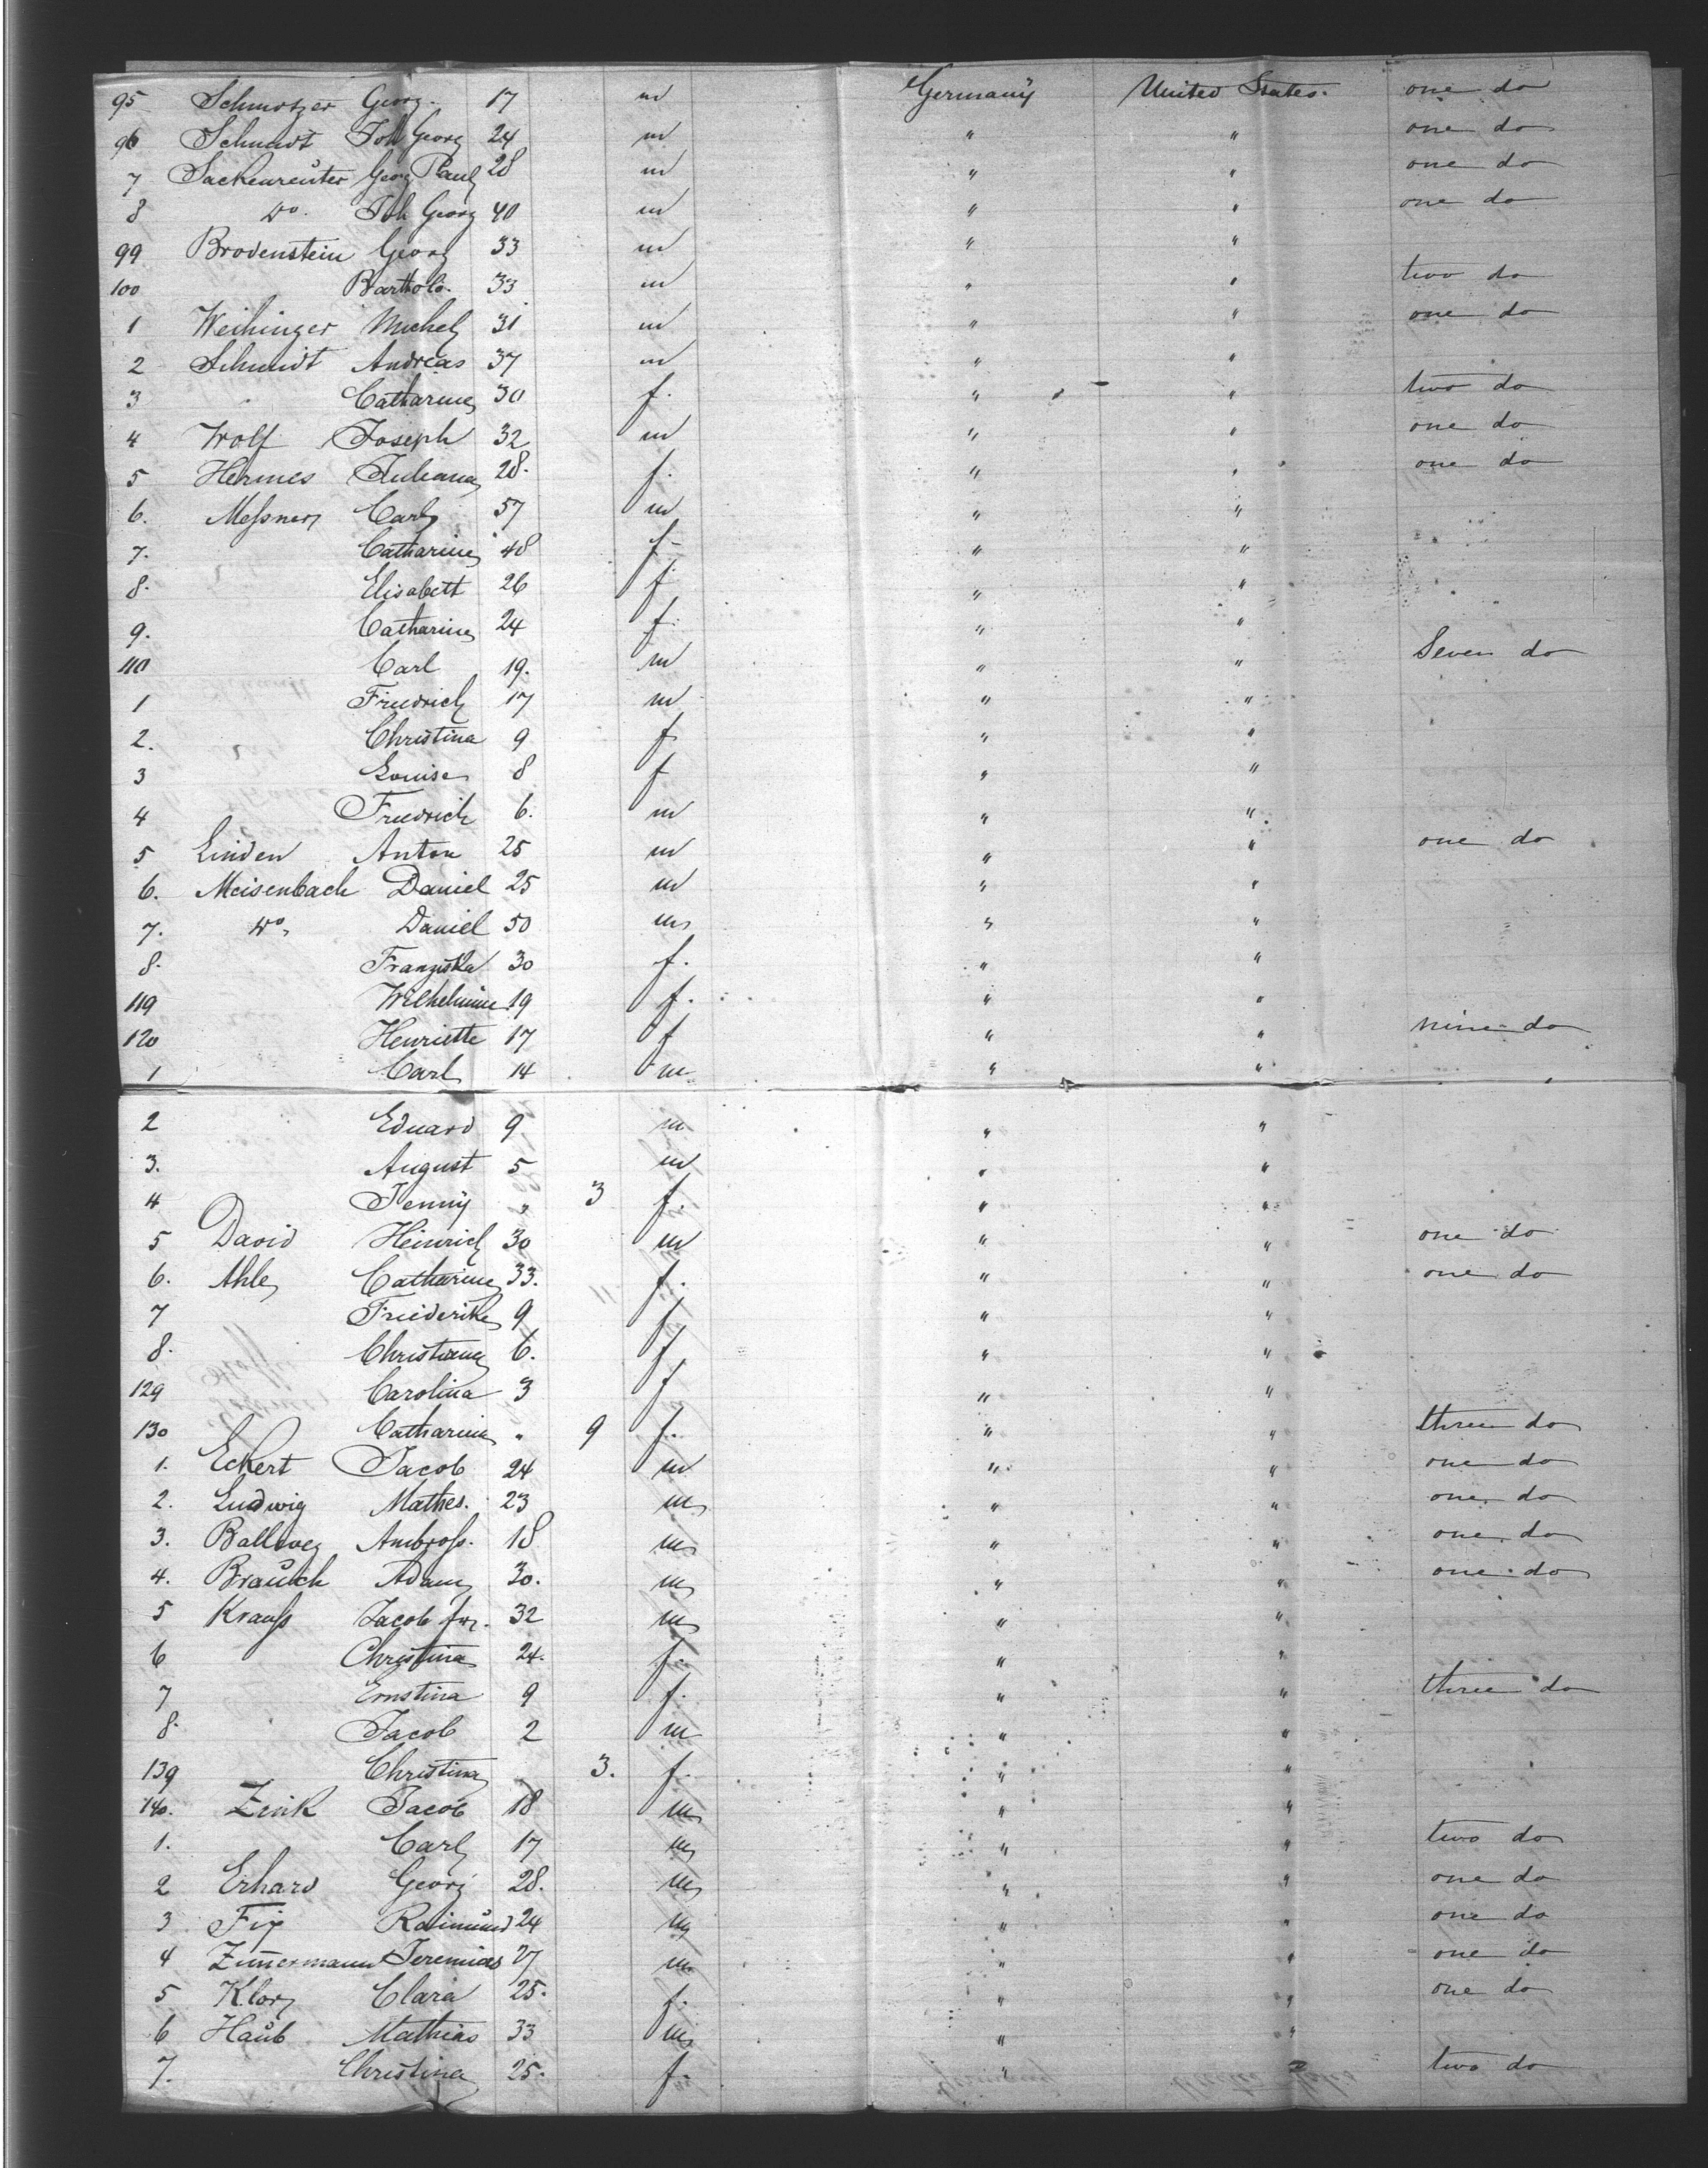 95 Schmotzer Georg. 17 m Germany United States. one do
96 Schmidt Joh Georg 24 m " " one do
7 Sackenreuter Georg Paul 28 m " " one do
8 do. Joh Georg 40 m " " one do
99 Brodenstein Georg 33 m " "
100 Bartholo. 33 m " " two do
1 Weihinger Michel 31 m " " one do
2 Schmidt Andreas 37 m " "
3 Catharina 30 f. " " two do
4 Wolf Joseph 32 m " " one do
5 Hermes Juliana 28. f. " " one do
6. Meſsner Carl 57 m " "
7. Catharina 48 f " "
8. Elisabett 26 f " "
9. Catharina 24 f. " "
110 Carl 19. m " " Seven do
1 Friedrich 17 m " "
2. Christina 9 f " "
3 Louise 8 f " "
4 Friedrich 6. m " "
5 Linden Anton 25 m " " one do
6. Meisenbach Daniel 25 m " "
7. do, Daniel 50 m " "
8. Franziska 30 f. " "
119 Wilhelmine 19 f. " "
120 Henriette 17 f " " nine do
1 Carl 14 m " "
2 Eduard 9 m " "
3. August 5 m " "
4 Jenny " 3 f. " "
5 David Heinrich 30 m " " one do
6. Ahle Catharine 33. f. " " one do
7 Friederike 9 f " "
8. Christiana 6. f. " "
129 Carolina 3 f " "
130 Catharina " 9 f. " " three do
1. Eckert Jacob 24 m " " one do
2. Ludwig Mathes. 23 m " " one do
3. Ballweg Ambroſs. 18 m " " one do
4. Brauch Adam 30. m " " one do
5 Krauſs Jacob jr. 32 m " "
6 Christina 24. f. " "
7 Ernstina 9 f. " " three do
8. Jacob 2 m " "
139 Christina 3. f. " "
140. Zink Jacob 18 m " "
1. Carl 17 m " " two do
2 Erhard Georg 28. m " " one do
3 Fix Raimund 24 m " " one do
4 Zim̄ermann Jeremias 27 m " " one do
5 Klor Clara 25. f. " " one do
6 Haub Mathias 33 m " "
7. Christina 25. f. " " two do